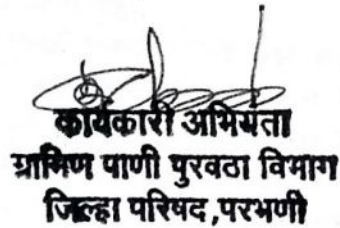 कार्यकारी अभियंता
ग्रामिण पाणी पुरवठा विभाग
जिल्हा परिषद,परभणी